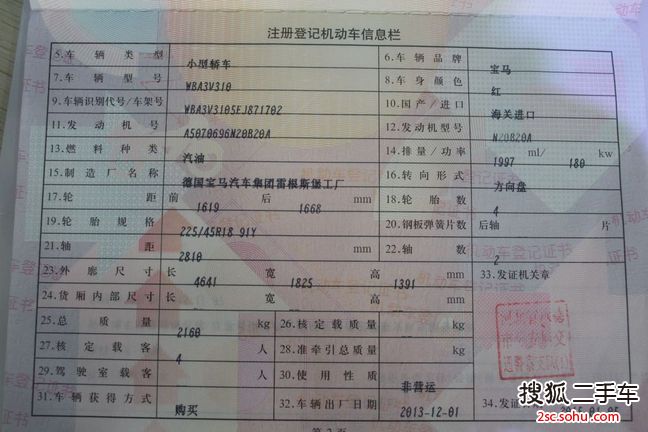 注册登记机动车信息栏
5.车辆类型 小型轿车 6.车辆品牌 宝马
7.车辆型号 WBA3V310 8.车身颜色 红
9.车辆识别代号/车架号 WBA3V3105EJ871702 10.国产/进口 海关进口
11.发动机号 A5070696N20B20A 12.发动机型号 N20B20A
13.燃料种类 汽油 14.排量/功率 1997 ml/ 180 kw
15.制造厂名称 德国宝马汽车集团雷根斯堡工厂 16.转向形式 方向盘
17.轮距 前 1619 后 1668 mm 18.轮胎数 4
19.轮胎规格 225/45R18 91Y 20.钢板弹簧片数 后轴 片
21.轴距 2810 mm 22.轴数 2
23.外廓尺寸 长 4641 宽 1825 高 1391 mm 33.发证机关章
24.货厢内部尺寸 长 宽 高 mm
25.总质量 2160 kg 26.核定载质量 kg
27.核定载客 4 人 28.准牵引总质量 kg
29.驾驶室载客 人 30.使用性质 非营运
31.车辆获得方式 购买 32.车辆出厂日期 2013-12-01 34.发证
搜狐二手车
2sc.sohu.com